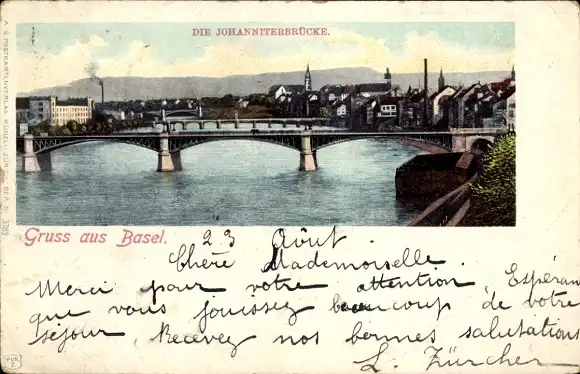 DIE JOHANNITERBRÜCKE.
Gruss aus Basel.
23 Août.
Chère Mademoiselle.
Merci pour votre attention, Espérant
que vous jouissez beaucoup de votre
séjour. Recevez nos bonnes salutations
L. Zürcher